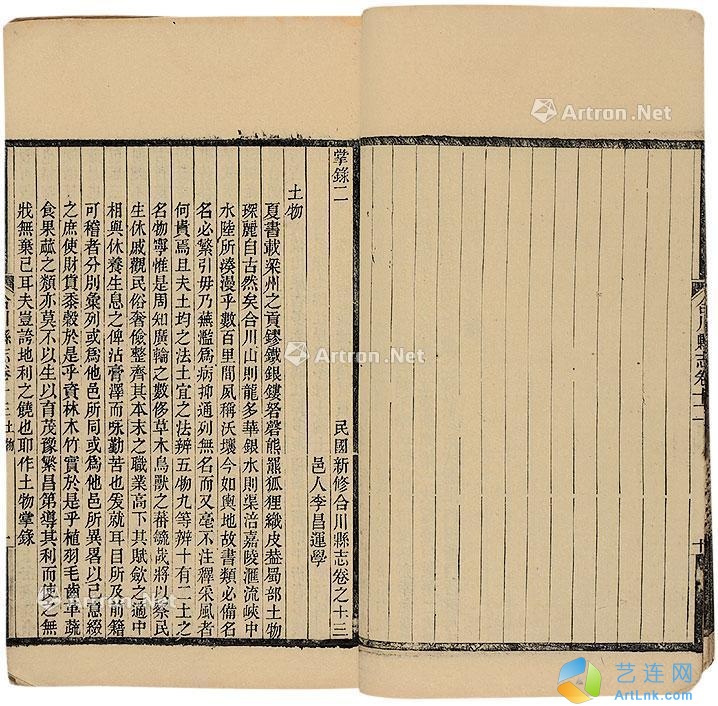 掌錄二
民國新修合川縣志卷之十三
邑人李昌運學
土物
夏書載梁州之貢鏐鐵銀鏤砮磬熊羆狐狸織皮葢局部土物
琛麗自古然矣合川山則龍多華銀水則渠涪嘉陵滙流峽中
水陸所湊漫乎數百里間夙稱沃壤今如輿地故書類必備名
名必繁引毋乃蕪濫為病抑通列無名而又毫不注釋采風者
何貴焉且夫土均之法土宜之法辨五物九等辨十有二土之
名物寧惟是周知廣輪之數侈草木鳥獸之蕃毓哉將以察民
生休戚觀民俗奢儉整齊其本末之職業高下其賦斂之適中
相與休養生息之俾沾膏澤而咏勤苦也爰就耳目所及前籍
可稽者分別彙列或為他邑所同或為他邑所異畧以己意綴
之庶使財貨黍穀於是乎資林木竹實於是乎植羽毛齒革蔬
食果蓏之類亦莫不以生以育茂豫繁昌第導其利而使之無
戕無棄己耳夫豈誇地利之饒也耶作土物掌錄
合川縣志卷十三 土物
一
合川縣志卷十二
Artron.Net
Artron.Net
Artron.Net
艺连网
ArtLnk.com